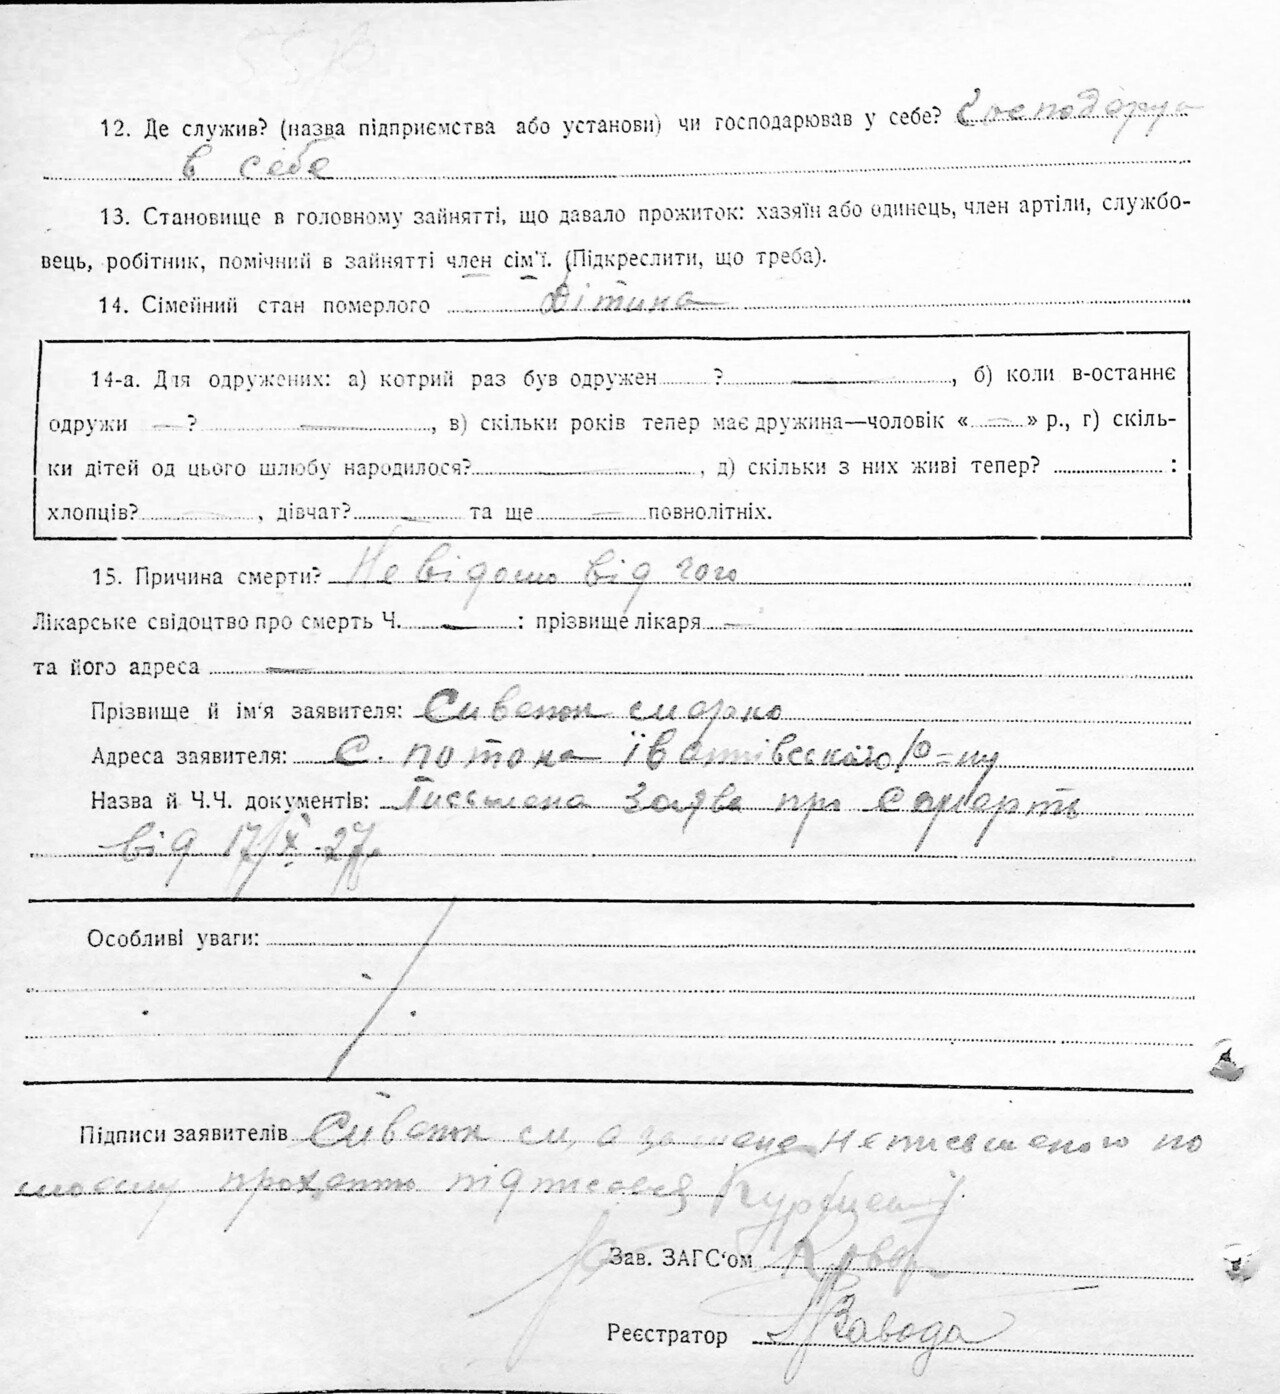 12. Де служив? (назва підприємства або установи) чи господарював у себе? Господарує
в себе
13. Становище в головному зайнятті, що давало прожиток: хазяїн або одинець, член артіли, службо-
вець, робітник, помічний в зайнятті член сім'ї. (Підкреслити, що треба).
14. Сімейний стан померлого Дітина
14-а. Для одружених: а) котрий раз був одружен ? —, б) коли в-останнє
одружи — ? —, в) скільки років тепер має дружина—чоловік « — » р., г) скіль-
ки дітей од цього шлюбу народилося? —, д) скільки з них живі тепер? :
хлопців? —, дівчат? — та ще — повнолітніх.
15. Причина смерти? Не відомо від чого
Лікарське свідоцтво про смерть Ч. — : прізвище лікаря —
та його адреса —
Прізвище й ім'я заявителя: Сиваток
Адреса заявителя: С. потока
Назва й Ч.Ч. документів: Письмена Заява про Смерть
від 17/X 27р.
Особливі уваги:
Підписи заявителів Сиваток неписьменого по
проханню підписався
Зав. ЗАГС'ом
Реєстратор Завода